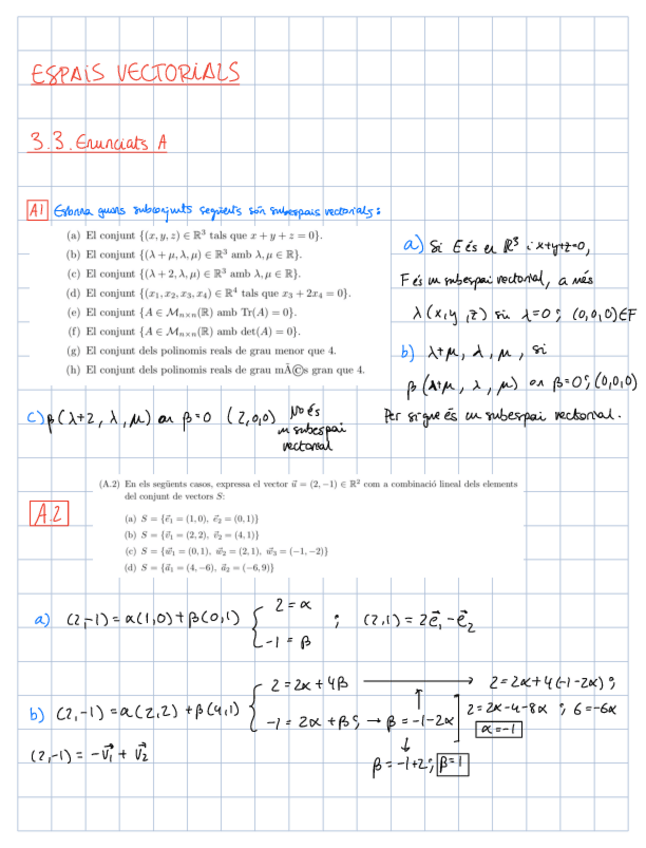 ESPAIS VECTORIALS
3.3. Enunciats A
A1 Esbrina quins subconjunts següents són subespais vectorials:
(a) El conjunt {(x, y, z) ∈ ℝ³ tals que x + y + z = 0}.
(b) El conjunt {(λ + μ, λ, μ) ∈ ℝ³ amb λ, μ ∈ ℝ}.
(c) El conjunt {(λ + 2, λ, μ) ∈ ℝ³ amb λ, μ ∈ ℝ}.
(d) El conjunt {(x₁, x₂, x₃, x₄) ∈ ℝ⁴ tals que x₃ + 2x₄ = 0}.
(e) El conjunt {A ∈ ℳₙₓₙ(ℝ) amb Tr(A) = 0}.
(f) El conjunt {A ∈ ℳₙₓₙ(ℝ) amb det(A) = 0}.
(g) El conjunt dels polinomis reals de grau menor que 4.
(h) El conjunt dels polinomis reals de grau mÃ©s gran que 4.
a) Si E és en ℝ³ i x+y+z=0,
F és un subespai vectorial, a més
λ(x,y,z) si λ=0; (0,0,0)∈F
b) λ+μ, λ, μ, si
β(λ+μ, λ, μ) on β=0; (0,0,0)
Per sigue és un subespai vectorial.
c) β(λ+2, λ, μ) on β=0 (2,0,0) No és
un subespai
vectorial
A.2
(A.2) En els següents casos, expressa el vector u⃗ = (2, −1) ∈ ℝ² com a combinació lineal dels elements
del conjunt de vectors S:
(a) S = {e⃗₁ = (1, 0), e⃗₂ = (0, 1)}
(b) S = {v⃗₁ = (2, 2), v⃗₂ = (4, 1)}
(c) S = {w⃗₁ = (0, 1), w⃗₂ = (2, 1), w⃗₃ = (−1, −2)}
(d) S = {a⃗₁ = (4, −6), a⃗₂ = (−6, 9)}
a) (2,-1) = α(1,0) + β(0,1) { 2 = α ; (2,1) = 2e⃗₁ - e⃗₂
-1 = β
b) (2,-1) = α(2,2) + β(4,1) { 2 = 2α + 4β → 2 = 2α + 4(-1-2α);
-1 = 2α + β; → β = -1-2α 2 = 2α - 4 - 8α ; 6 = -6α
α = -1
(2,-1) = -v⃗₁ + v⃗₂ β = -1+2; β = 1